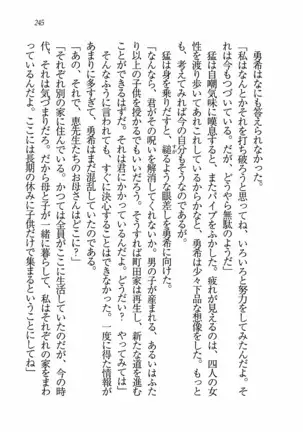 245
　勇希にも答えられなかった。
「私はなんとかそれを打ち破ろうと思ってね、いろいろと努力をしてみたんだよ。そ
れは今もつづいている。だが、どうやら無駄のようだ」
　猛は自嘲気味に嘆息すると、またパイプをふかした。疲れが見えるのは、四人の女
性を渡り歩いてあれこれしているからかなと、勇希は少々下品な想像をした。もっと
も、考えてみれば今の自分もそうなのであるが。
　猛は身を乗りだし、縋るような眼差しを勇希に向けた。
「なんなら、君がその呪いを解いてくれないか。男の子が産まれる、あるいはふた
り以上の子供を授かるでもいいだろう。そうすれば町田家は再生し、新たな道を進む
ことができるはずだ。それは君にかかっているんだよ。どうだい？　やってみては」
　そんなふうに言われても、すぐに決心することはできなかった。一度に得た情報が
あまりに多すぎて、勇希はまだ混乱していたのである。
「あの、それで、恵先生たちのお母さんはどこに？」
「それぞれ別の家に住んでいる。かつては全員がここに生活していたのだが、今の時
代、それは気づまりだろ。だから母と子が一緒に暮らして、私はそれぞれの家をまわ
っているんだよ。ここには長期の休みに子供だけで集まるということにしてね」